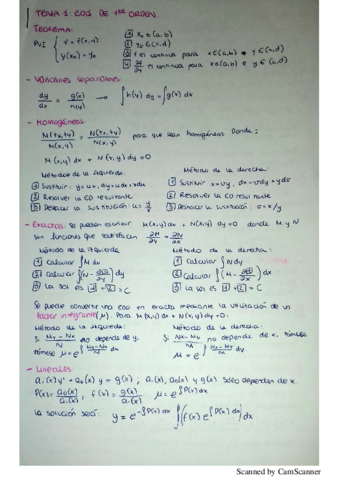 TEMA 1: EDOS DE 1er ORDEN.
Teorema:
PVI { y' = f(x,y)
y(x₀) = y₀
① x₀ ∈ (a,b)
② y₀ ∈ (c,d)
③ f es continua para x∈(a,b) e y∈(c,d)
④ ∂f/∂y es continua para x∈(a,b) e y∈(c,d)
- Variables separables:
dy/dx = g(x)/h(y) → ∫h(y) dy = ∫g(x) dx
- Homogéneas:
para que sean homogéneas. Donde:
M(x,y) dx + N(x,y) dy = 0
Método de la izquierda:
① Sustituir: y = ux, dy = udx + xdu
② Resolver la ED resultante
③ Deshacer la sustitución: u = y/x
Método de la derecha:
① Sustituir x = vy, dx = vdy + ydv
② Resolver la ED resultante
③ Deshacer la sustitución, v = x/y
- Exactas: se pueden escribir M(x,y) dx + N(x,y) dy = 0 donde M y N
son funciones que satisfacen ∂M/∂y = ∂N/∂x
Método de la izquierda
① Calcular ∫M dx
③ La sol es ① + ② = C
Método de la derecha:
① Calcular ∫N dy
③ La sol es ① + ② = C
Se puede convertir una ED en exacta mediante la utilización de un
factor integrante (μ). Para M(x,y) dx + N(x,y) dy = 0:
Método de la izquierda:
Si (My - Nx)/N no depende de y.
tómese μ = e^∫(My-Nx)/N dx
Método de la derecha:
Si (Nx - My)/M no depende de x, tómese
μ = e^∫(Nx-My)/M dy
- Lineales:
a₁(x) y' + a₀(x) y = g(x) ; a₁(x), a₀(x) y g(x) sólo dependen de x.
P(x) = a₀(x)/a₁(x) , f(x) = g(x)/a₁(x) μ = e^∫P(x) dx
La solución será: y = e^-∫P(x) dx ∫(f(x) e^∫P(x) dx) dx
Scanned by CamScanner